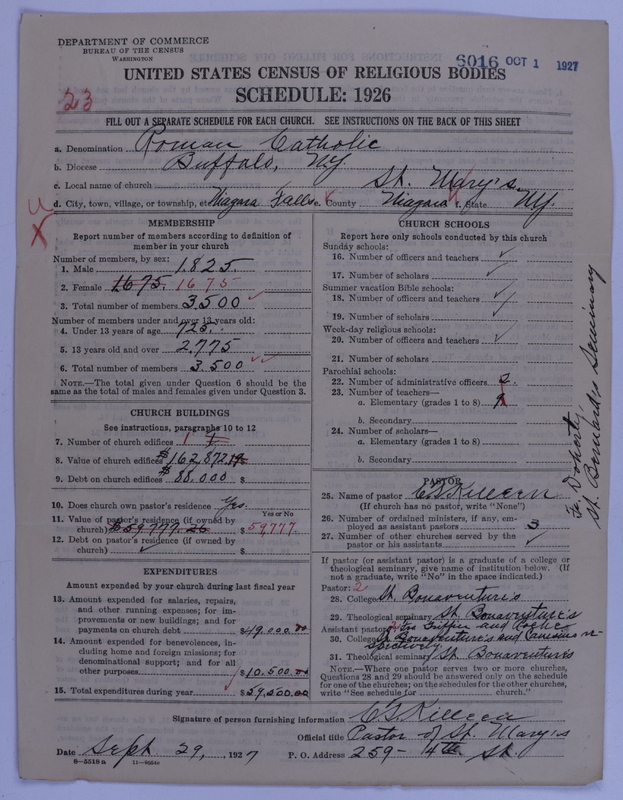 DEPARTMENT OF COMMERCE
BUREAU OF THE CENSUS
WASHINGTON
6016 OCT 1 1927
UNITED STATES CENSUS OF RELIGIOUS BODIES
23
SCHEDULE: 1926
FILL OUT A SEPARATE SCHEDULE FOR EACH CHURCH. SEE INSTRUCTIONS ON THE BACK OF THIS SHEET
a. Denomination Roman Catholic
b. Diocese Buffalo, N.Y.
c. Local name of church St. Mary's
d. City, town, village, or township, etc. Niagara Falls e. County Niagara f. State N.Y.
MEMBERSHIP
Report number of members according to definition of
member in your church
Number of members, by sex:
1. Male 1.825.
2. Female 1675. 1675
3. Total number of members 3.500
Number of members under and over 13 years old:
4. Under 13 years of age 725.
5. 13 years old and over 2.775
6. Total number of members 3.500
NOTE.—The total given under Question 6 should be the
same as the total of males and females given under Question 3.
CHURCH BUILDINGS
See instructions, paragraphs 10 to 12
7. Number of church edifices 1
8. Value of church edifices $162,872.19
9. Debt on church edifices $88.000 $
10. Does church own pastor's residence? Yes.
Yes or No
11. Value of pastor's residence (if owned by
church) $59.777.26 $59,777.
12. Debt on pastor's residence (if owned by
church) $
EXPENDITURES
Amount expended by your church during last fiscal year
13. Amount expended for salaries, repairs,
and other running expenses; for im-
provements or new buildings; and for
payments on church debt $49.000.00
14. Amount expended for benevolences, in-
cluding home and foreign missions; for
denominational support; and for all
other purposes $10.500.00
15. Total expenditures during year $59,500.00
CHURCH SCHOOLS
Report here only schools conducted by this church
Sunday schools:
16. Number of officers and teachers
17. Number of scholars
Summer vacation Bible schools:
18. Number of officers and teachers
19. Number of scholars
Week-day religious schools:
20. Number of officers and teachers
21. Number of scholars
Parochial schools:
22. Number of administrative officers 2.
23. Number of teachers—
a. Elementary (grades 1 to 8) 9
b. Secondary
24. Number of scholars—
a. Elementary (grades 1 to 8)
b. Secondary
PASTOR
25. Name of pastor C. G. Killeen
(If church has no pastor, write "None")
26. Number of ordained ministers, if any, em-
ployed as assistant pastors 3
27. Number of other churches served by the
pastor or his assistants
If pastor (or assistant pastor) is a graduate of a college or
theological seminary, give name of institution below. (If
not a graduate, write "No" in the space indicated.)
Pastor: 2
28. College St. Bonaventure's
29. Theological seminary St. Bonaventure's
Assistant pastor: and
30. College St. Bonaventure's and Canisius re-
spectively
31. Theological seminary St. Bonaventure's
NOTE.—Where one pastor serves two or more churches,
Questions 28 and 29 should be answered only on the schedule
for one of the churches; on the schedules for the other churches,
write "See schedule for ........ church."
Fr. Doherty,
St. Bernard's Seminary
Signature of person furnishing information C. G. Killeen
Official title Pastor of St. Mary's
Date Sept 29, 1927 P. O. Address 259- 4th St.
8—5518a